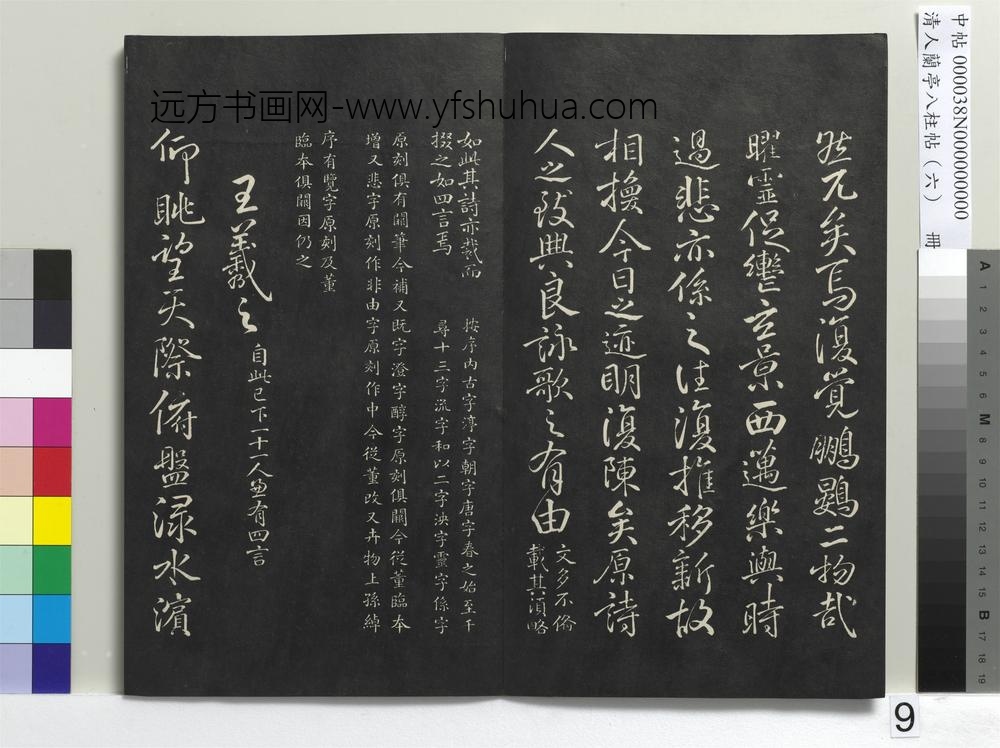 然兀矣焉復覺鵬鷃二物哉
曜靈促轡玄景西邁樂與時
過悲亦係之往復推移新故
相換今日之迹明復陳矣原詩
人之致興良詠歌之有由
文多不備
載其須略
如此其詩亦裁而
掇之如四言焉
按序內古字淳字朝字唐字春之始至千
尋十三字流字和以二字泱字靈字係字
原刻俱有闕筆今補又既字澄字醇字原刻俱闕今從董臨本
增又悲字原刻作非由字原刻作中今從董改又卉物上孫綽
序有覽字原刻及董
臨本俱闕因仍之
王羲之
自此已下一十一人並有四言
仰眺望天際俯盤淥水濱
远方书画网-www.yfshuhua.com
中帖 000038N000000000
清人蘭亭八柱帖(六) 冊
A
1
2
3
4
5
6
M
8
9
10
11
12
13
14
15
B
17
18
19
9